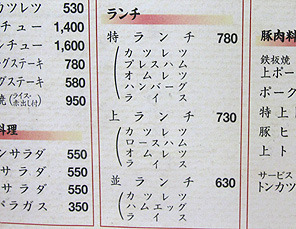 カツレツ 530
チュー 1,400
チュー 1,600
グステーキ 780
ステーキ 580
焼(ライス・赤出し付) 950
料理
ンサラダ 550
サラダ 550
サラダ 550
パラガス 350
ランチ
特ランチ 780
カツレツ
プレスハム
オムレツ
ハンバーグ
ライス
上ランチ 730
カツレツ
ロースハム
オムレツ
ライス
並ランチ 630
カツレツ
ハムエッグ
ライス
豚肉料
鉄板焼
上ポー
ポーク
特上
豚ヒ
上ト
サービス
トンカツ